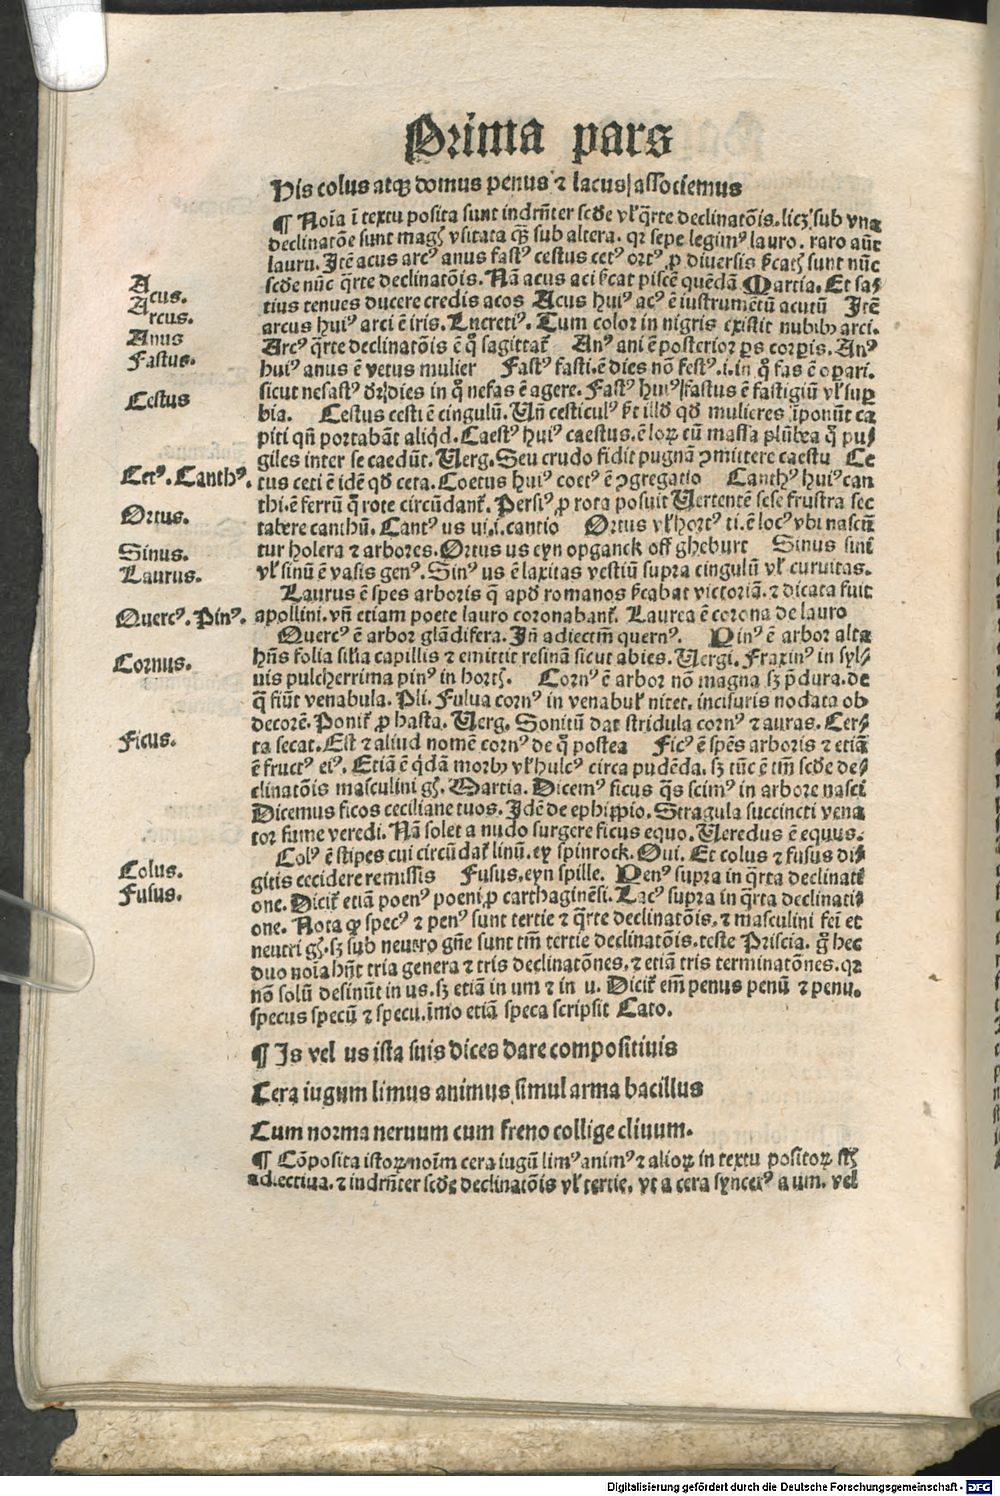 Prima pars
His colus atqꝫ domus penus ⁊ lacus| associemus
¶ Noīa ī textu posita sunt indrn̄ter scd̄e vl̓ q̄rte declinatōis. licꝫ sub vna
declinatōe sunt magꝭ vsitata qȝ̄ sub altera. qꝛ sepe legimꝰ lauro. raro aūt
lauru. Itē acus arcꝰ anus fastꝰ cestus cetꝰ ortꝰ ꝓ diuersis sc̄atꝭ sunt nūc
scd̄e nūc q̄rte declinatōis. Nā acus aci sc̄cat piscē quēdā Martia. Et sa⸗
tius tenues ducere credis acos Acus huiꝰ acꝰ ē iustrumētū acutū Itē
arcus huiꝰ arci ē iris. Lucretiꝰ. Tum color in nigris existit nubibꝰ arci.
Arcꝰ q̄rte declinatōis ē q̊ sagittat᷑ Anꝰ ani ē posterior ꝑs corꝑis. Anꝰ
huiꝰ anus ē vetus mulier Fastꝰ fasti. ē dies nō festꝰ .i. in q̊ fas ē oꝑari.
sicut nefastꝰ dꝛ| dies in q̊ nefas ē agere. Fastꝰ huiꝰ|fastus ē fastigiū vl̓ suꝑ
bia. Cestus cesti ē cingulū. Un̄ cesticulꝰ sc̄t illd̓ qd̓ mulieres īponūt ca
piti qn̄ portabāt aliq̇d. Caestꝰ huiꝰ caestus. ē loꝝ cū massa plūbea q̊ pu⸗
giles inter se caedūt. Uerg. Seu crudo fidit pugnā ꝯmittere caestu Ce
tus ceti ē idē qd̓ ceta. Coetus huiꝰ coetꝰ ē ꝯgregatio Canthꝰ huiꝰ can
thi. ē ferrū q̊ rote circūdant᷑. Persiꝰ ꝓ rota posuit Uertentē sese frustra sec
tabere canthū. Cantꝰ us ui .i. cantio Ortus vl̓ hortꝰ ti. ē locꝰ vbi nascū
tur holera ⁊ arbores. Ortus us eyn opganck off gheburt Sinus sini
vl̓ sinū ē vasis genꝰ. Sinꝰ us ē laxitas vestiū supra cingulū vl̓ curuitas.
Laurus ē spes arboris q̄ apd̓ romanos sc̄cabat victoriā. ⁊ dicata fuit
apollini. vn̄ etiam poete lauro coronabant᷑. Laurea ē corona de lauro
Quercꝰ ē arbor glādifera. In̄ adiectm̄ quernꝰ. Pinꝰ ē arbor alta
hn̄s folia sil̓ia capillis ⁊ emittit resinā sicut abies. Uergi. Fraxinꝰ in syl⸗
uis pulcherrima pinꝰ in hortꝭ. Cornꝰ ē arbor nō magna sꝫ p̄dura. de
q̄ fiūt venabula. Pli. Fulua cornꝰ in venabul̓ nitet. incisuris nodata ob
decorē. Ponit᷑ ꝓ hasta. Uerg. Sonitū dat stridula cornꝰ ⁊ auras. Cer⸗
ta secat. Est ⁊ aliud nomē cornꝰ de q̊ postea Ficꝰ ē spēs arboris ⁊ etiā
ē fructꝰ eiꝰ. Etiā ē q̇dā morbꝰ vl̓ hulcꝰ circa pudēda. sꝫ tūc ē tm̄ scd̄e de⸗
clinatōis masculini gn̄ꝭ. Martia. Dicemꝰ ficus q̄s scimꝰ in arbore nasci
Dicemus ficos ceciliane tuos. Idē de ephippio. Stragula succincti vena
tor sume veredi. Nā solet a nudo surgere ficus equo. Ueredus ē equus.
Colꝰ ē stipes cui circūdat᷑ linū. ey spinrock. Oui. Et colus ⁊ fusus di⸗
gitis cecidere remissis Fusus. eyn spille. Penꝰ supra in q̄rta declinati
one. Dicit᷑ etiā poenꝰ poeni ꝓ carthaginēsi. Lacꝰ supra in q̄rta declinati⸗
one. Nota ꝙ specꝰ ⁊ penꝰ sunt tertie ⁊ q̄rte declinatōis. ⁊ masculini fei ̄ et
neutri gn̄ꝭ. sꝫ sub neutro gn̄e sunt tm̄ tertie declinatōis. teste Priscia. g̊ hec
duo noīa hn̄t tria genera ⁊ tris declinatōnes. ⁊ etiā tris terminatōnes. qꝛ
nō solū desinūt in us. sꝫ etiā in um ⁊ in u. Dicit᷑ em̄ penus penū ⁊ penu.
specus specū ⁊ specu. īmo etiā speca scripsit Cato.
¶ Is vel us ista suis dices dare compositiuis
Cera iugum limus animus simul arma bacillus
Cum norma neruum cum freno collige cliuum.
¶ Cōposita istoꝝ noīm cera iugū limꝰ animꝰ ⁊ alioꝝ in textu positoꝝ st̄
adiectiua. ⁊ indrn̄ter scd̄e declinatōis vl̓ tertie. vt a cera syncerꝰ a um. vel
Acus.
Arcus.
Anus
Fastus.
Cestus
Cetꝰ. Canthꝰ.
Ortus.
Sinus.
Laurus.
Quercꝰ. Pinꝰ.
Cornus.
Ficus.
Colus.
Fusus.
Digitalisierung gefördert durch die Deutsche Forschungsgemeinschaft - DFG